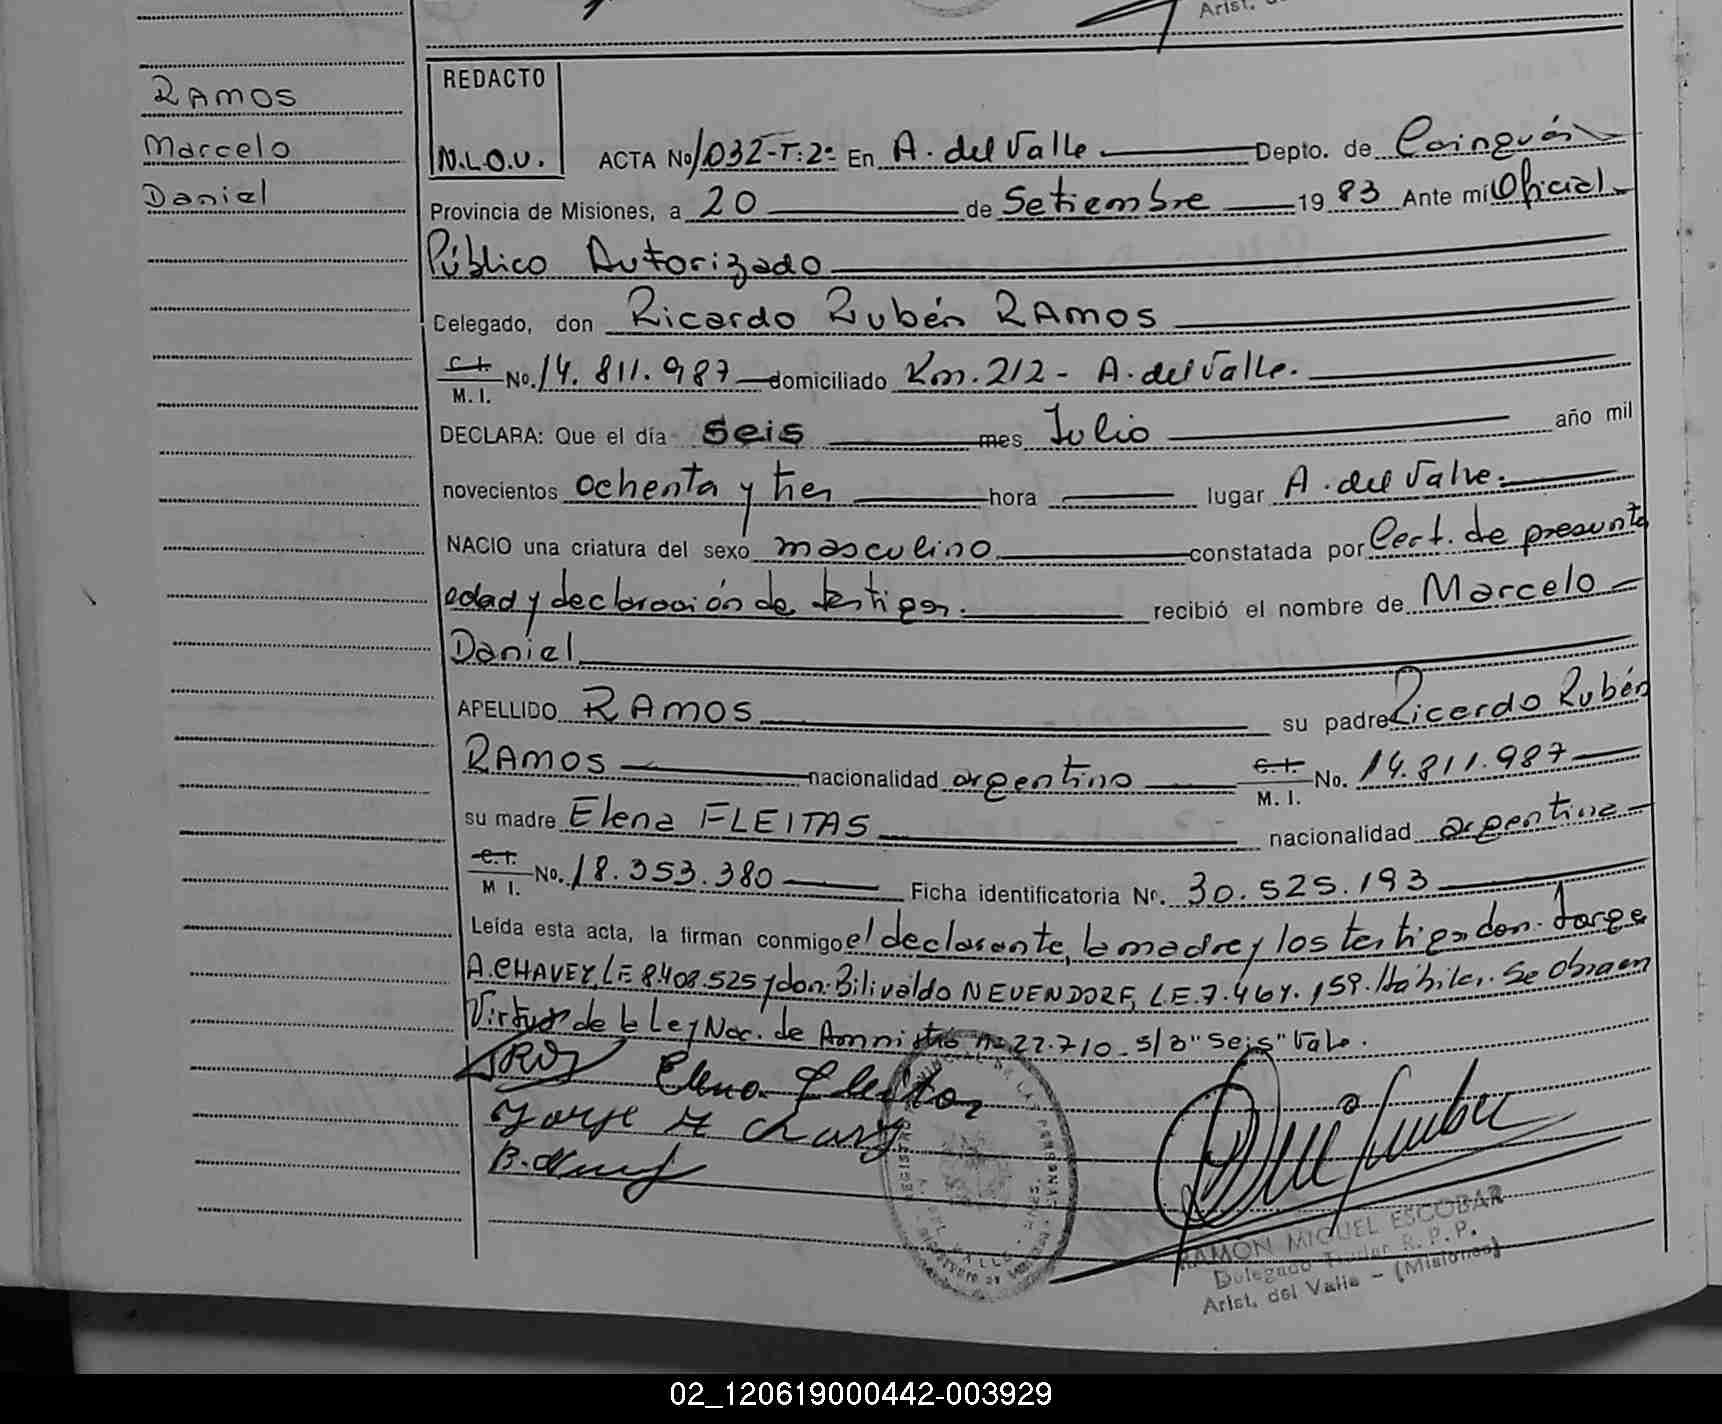 Arist.
RAMOS
Marcelo
Daniel
REDACTO
N.L.O.V.
ACTA No 1032-T:2º En A. del Valle Depto. de Cainguás
Provincia de Misiones, a 20 de Setiembre 1983 Ante mí Oficial
Público Autorizado
Delegado, don Ricardo Rubén RAMOS
C.I. M.I. No. 14.811.987 domiciliado Km. 212 - A. del Valle.
DECLARA: Que el día seis mes Julio año mil
novecientos ochenta y tres hora lugar A. del Valle.
NACIO una criatura del sexo masculino constatada por Cert. de presunta
edad y declaración de testigos. recibió el nombre de Marcelo
Daniel
APELLIDO RAMOS su padre Ricardo Rubén
RAMOS nacionalidad argentino C.I. M.I. No. 14.811.987
su madre Elena FLEITAS nacionalidad argentina
C.I. M I. No. 18.353.380 Ficha identificatoria Nº. 30.525.193
Leída esta acta, la firman conmigo el declarante, la madre y los testigos don. Jorge
A. CHAVEZ, L.E. 8.408.525 y don. Bilivaldo NEUENDORF, L.E. 7.464.159. Hábiles. Se obra en
Virtud de la Ley Nac. de Amnistía nº 22.710 - s/b "seis" Vale.
Elena Fleitas
Jorge A Chavez
RAMON MIGUEL ESCOBAR
Delegado Titular R.P.P.
Arist. del Valle - (Misiones)
02_120619000442-003929